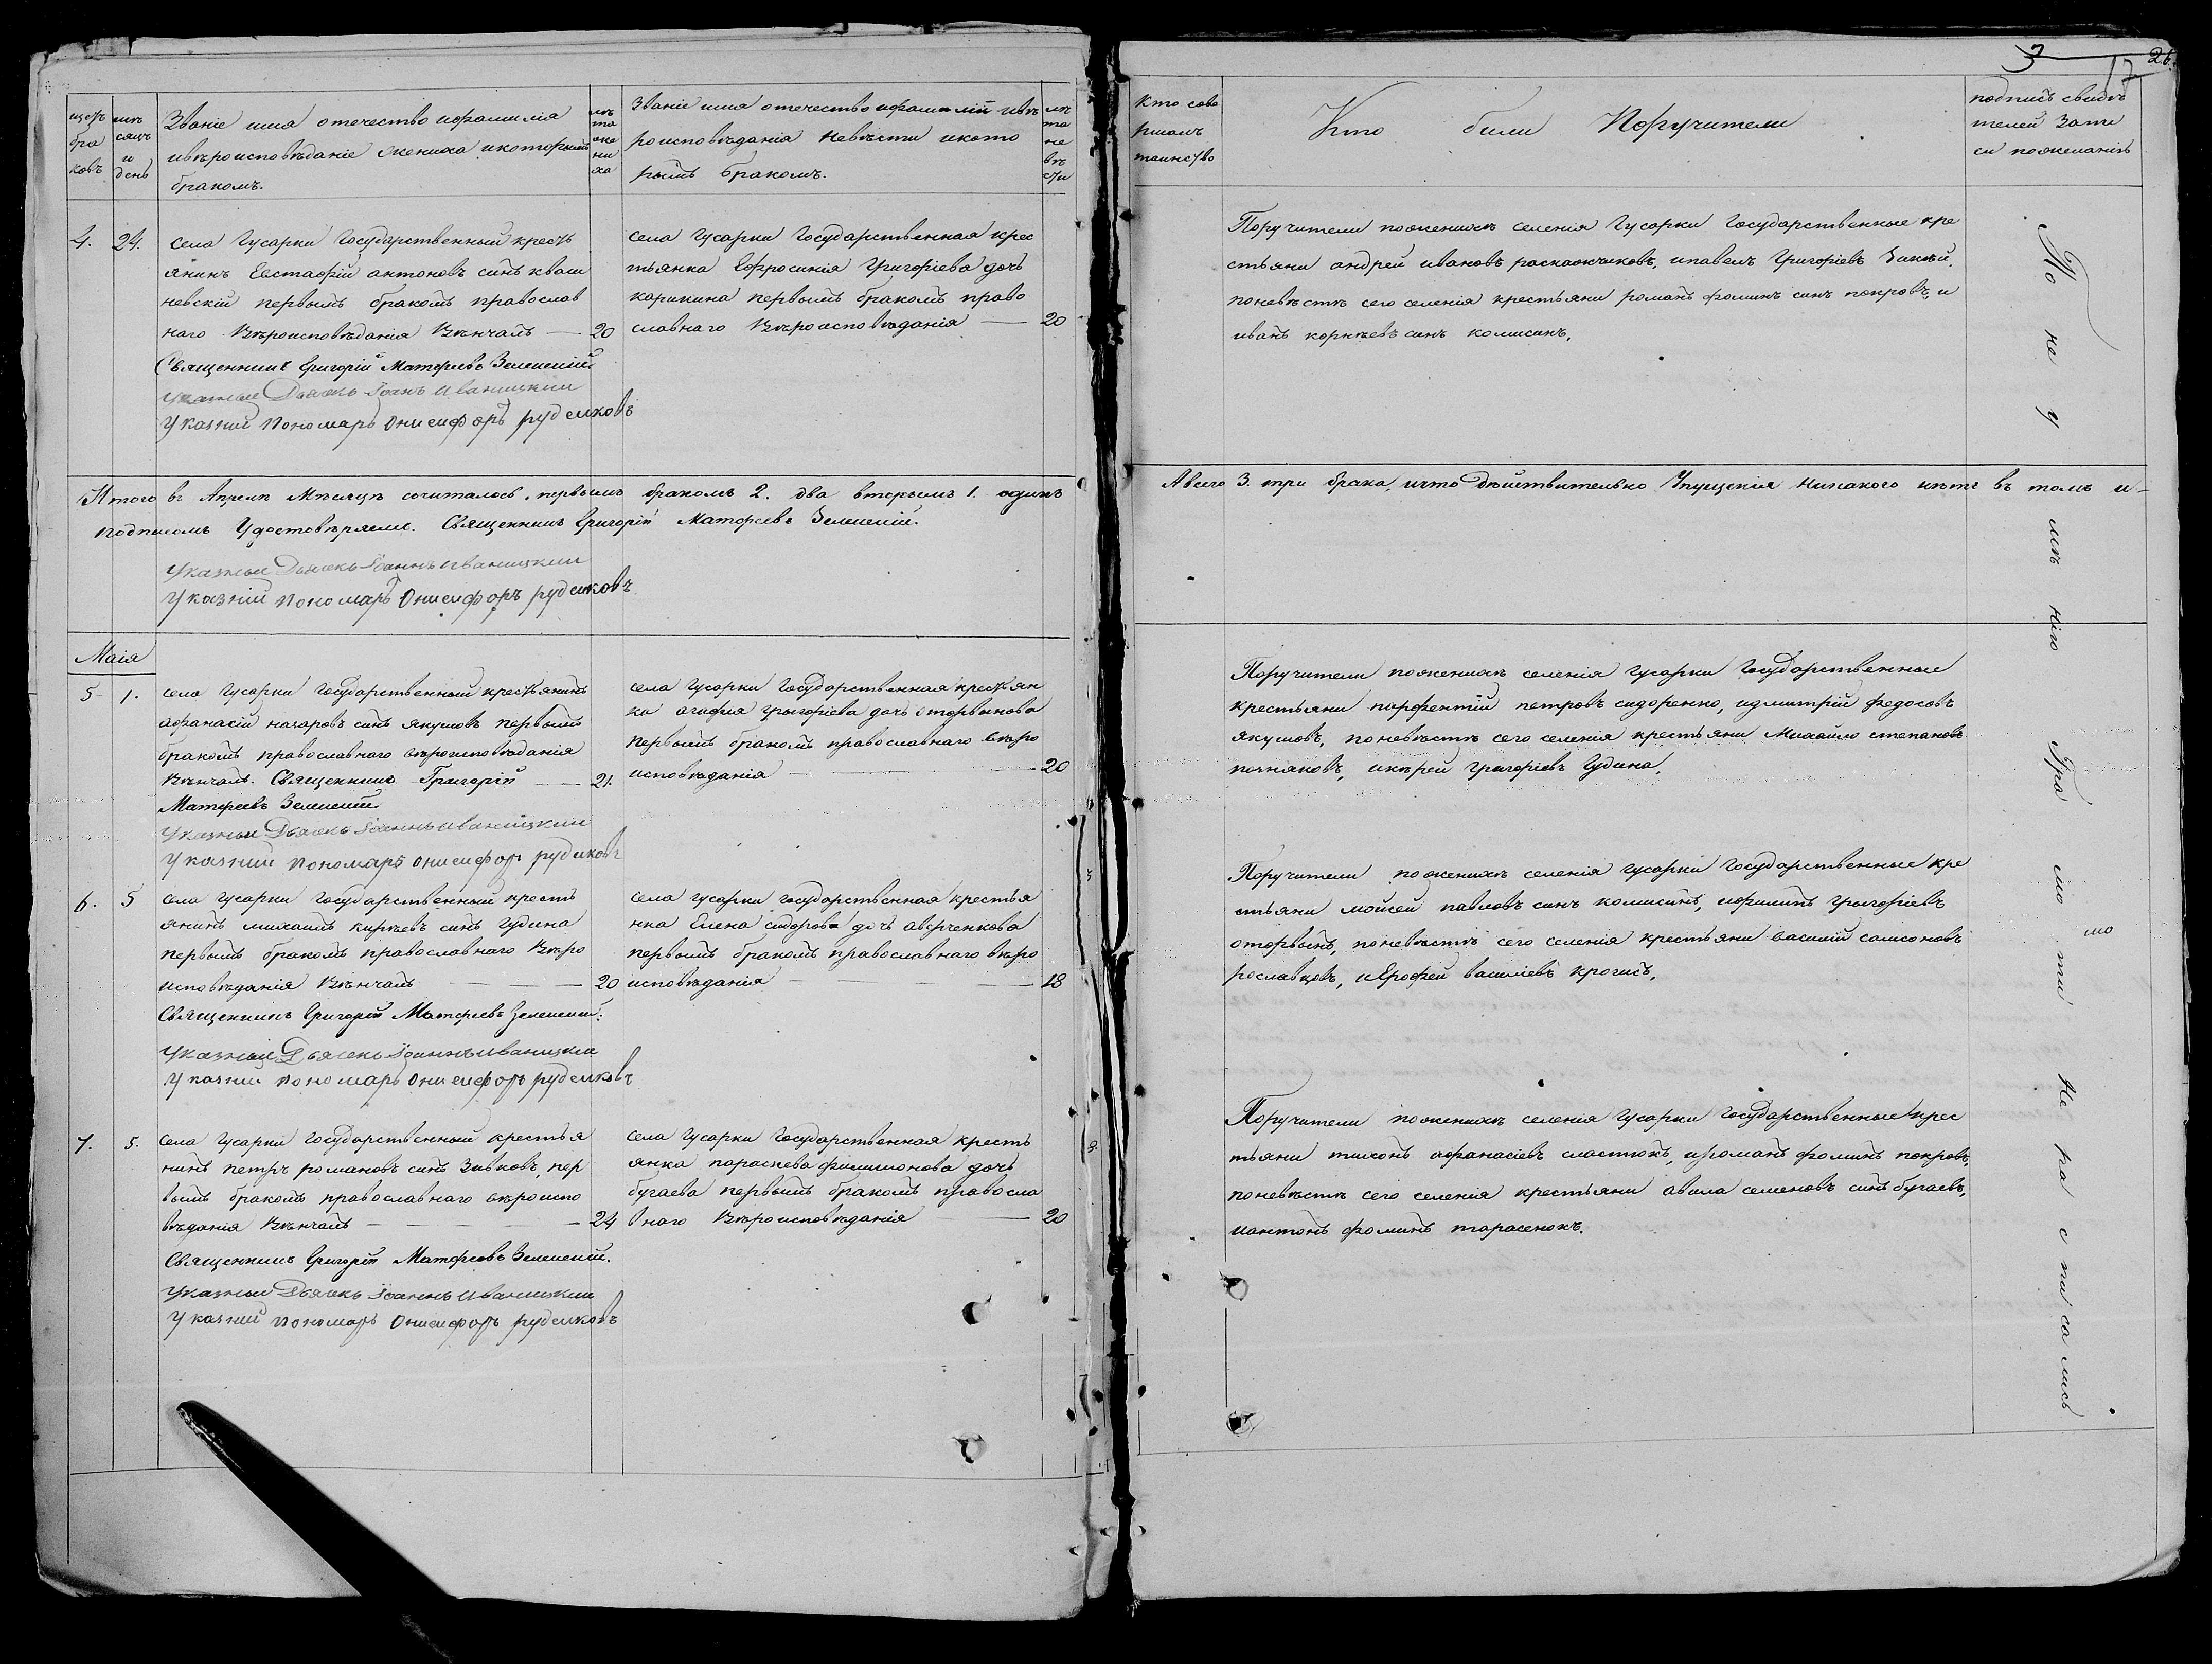 3 17 26.
щетъ
бра
ковъ
мѣ
сяцъ
и
день
Званіе имя отечество ифамилія
ивѣроисповѣданіе жениха икоторымъ
бракомъ.
лѣ
та
же
ни
ха
Званіе имя отечество ифамиліи ивѣ
роисповѣданія Невѣсти икото
рымъ бракомъ.
лѣ
та
не
вѣ
сти
Кто сове
ршалъ
таинство
Кто били Поручители
подпись свидѣ
телей Запи
си пожеланію
4. 24. села Гусарки Государственный кресть
янинъ Евстафій антоновъ синъ кваш
невскій первымъ бракомъ православ
наго Вѣроисповѣданія Вѣнчалъ — 20
Священникъ Григорій Матфеевъ Зеленскій
Указный Дьячекъ Іоанъ Иваницкий
Указний Пономарь Онисифоръ рудиковъ
села Гусарки Государственная крес
тьянка Ефросинія Григоріева дочь
карикина первымъ бракомъ право
славнаго Вѣроисповѣданія — 20
Поручители пожениxѣ селенія Гусарки Государственные кре
стьяни андрей ивановъ раскакчиковъ, ипавелъ Григоріевъ Зикѣй,
поневѣстѣ сего селенія крестьяни романъ фоминъ синъ покровъ, и
иванъ корнѣевъ синъ комисинъ.
Итого въ Апреле Мѣсяцѣ сочиталось первымъ бракомъ 2. два вторымъ 1. одинъ
Авсего 3. три брака, ичто Дѣйствительно Упущенія никакого нѣтъ въ томъ и-
подписомъ Удостовѣряемъ. Священникъ Григорій Матфеевъ Зеленскій.
Указный Дьячекъ Іоаннъ Иваницкий
Указній Пономарь Онисифоръ рудиковъ
Маія
5 1. села Гусарки Государственный крестьянинъ
афанасій назаровъ синъ якушовъ первымъ
бракомъ православнаго вѣроисповѣданія
Вѣнчалъ. Священникъ Григорій — 21.
Матфеевъ Зеленскій
Указный Дьячекъ Іоаннъ Иваницкий
Указний Пономарь Онисифоръ рудиковъ
села Гусарки Государственная крестьян
ка агафия григоріева дочь оторвинова
первымъ бракомъ православнаго вѣро
исповѣданія — 20
Поручители поженихѣ селенія Гусарки Государственные
крестьяни парфентій петровъ сидоренко, идмитрій федосовъ
якушовъ, поневѣстѣ сего селенія крестьяни Михайло степановъ
позняковъ, икирей григоріевъ Гудина.
6. 5 села Гусарки Государственный кресть
янинъ михаилъ кирѣевъ синъ гудина
первымъ бракомъ православнаго Вѣро
исповѣданія Вѣнчалъ — 20
Священникъ Григорій Матфеевъ Зеленскій:
Указный Дьячекъ Іоаннъ Иваницкий
Указний Пономарь Онисифоръ рудиковъ
села гусарки государственная крестья
нка Елена сидорова дочь аврченкова
первымъ бракомъ православнаго вѣро
исповѣданія — 18
Поручители поженихѣ селенія гусарки Государственные кре
стьяни мойсей павловъ синъ комисинъ, ифилипъ григоріевъ
оторвинъ, поневѣстѣ сего селенія крестьяни василій самсоновъ
рославцевъ, иЕрофей василіевъ крогисъ.
7. 5. села Гусарки Государственный крестья
нинъ петръ романовъ синъ Зивковъ, пер
вымъ бракомъ православнаго вѣроиспо
вѣданія Вѣнчалъ — 24
Священникъ Григорій Матфеевъ Зеленскій.
Указный Дьячекъ Іоаннъ Иваницкий
Указний Пономарь Онисифоръ рудиковъ
села Гусарки Государственная кресть
янка параскева филимонова дочь
бугаева первымъ бракомъ правосла
внаго Вѣроисповѣданія — 20
Поручители поженихѣ селенія гусарки Государственные крес
тьяни тихонъ афанасіевъ сластюкъ, ироманъ фоминъ покровъ,
поневѣстѣ сего селенія крестьяни авила семеновъ синъ бугаевъ,
иантонъ фоминъ тарасенокъ.
По не у мѣ нію Гра мо ти Не ра с пи са лись